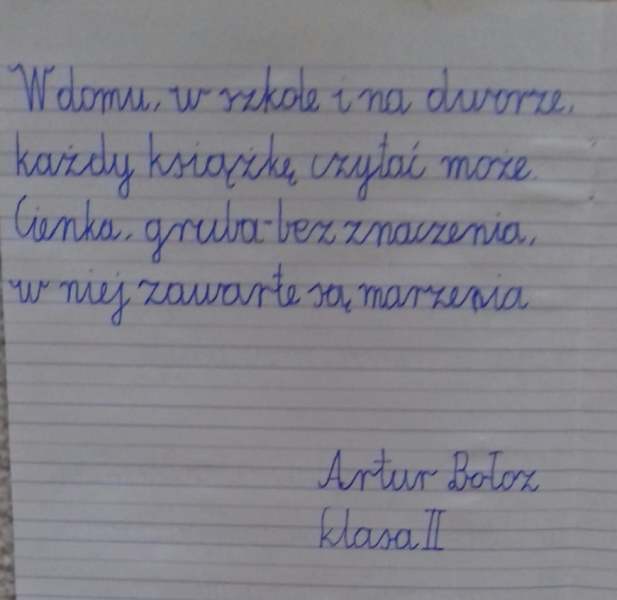 W domu, w szkole i na dworze,
każdy książkę czytać może.
Cienka, gruba-bez znaczenia,
w niej zawarte są marzenia
Artur Bołoz
klasa II